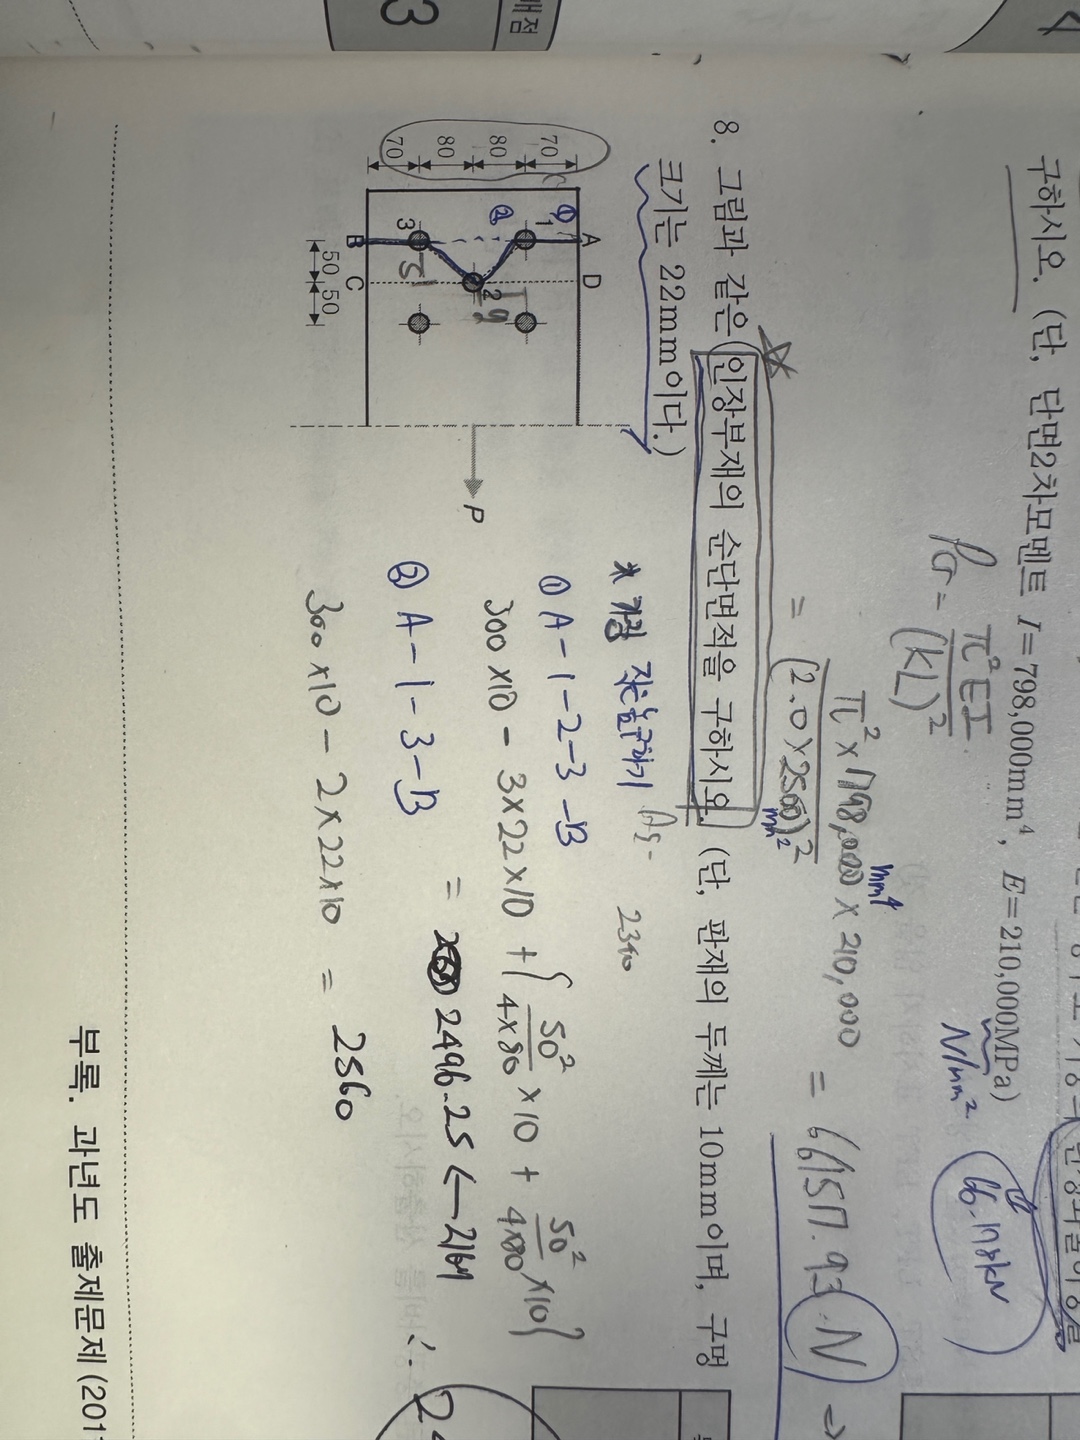 3
배점
구하시오. (단, 단면2차모멘트 I=798,000mm⁴, E=210,000MPa)
N/mm²
Pcr = π²EI / (KL)²
= π² × 798,000 × 210,000 / (2.0 × 2500)²
mm⁴
mm²
= 66157.93 N ⇒
66.178kN
8. 그림과 같은 인장부재의 순단면적을 구하시오. (단, 판재의 두께는 10mm이며, 구멍
크기는 22mm이다.)
70 80 80 70
A D
① ②
1
2
3
B C
50 50
P
2340
① A-1-2-3-B
300×10 - 3×22×10 + { 50² / 4×80 ×10 + 50² / 4×80 ×10 }
= 2496.25 ← 2169
② A-1-3-B
300×10 - 2×22×10 = 2560
∴
부록. 과년도 출제문제 (201